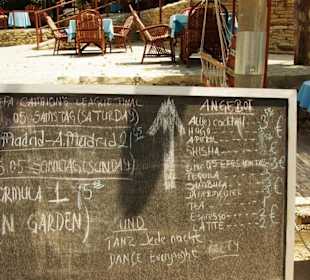 FA CAMPIONS LEAGUE FINAL
05 SAMSTAG (SATURDAY)
Madrid - A. Madrid 21
05 SONNTAG (SUNDAY)
ORMULA 1 15
N GARDEN)
UND
TANZ Jede nacht
DANCE Everynight
PARTY
ANGEBOT
HUGO
APEROL
SHISHA
EFES
TEQUILA
SAMBUCA
JÄGERMEISTER
TEA
Espresso
LATTE